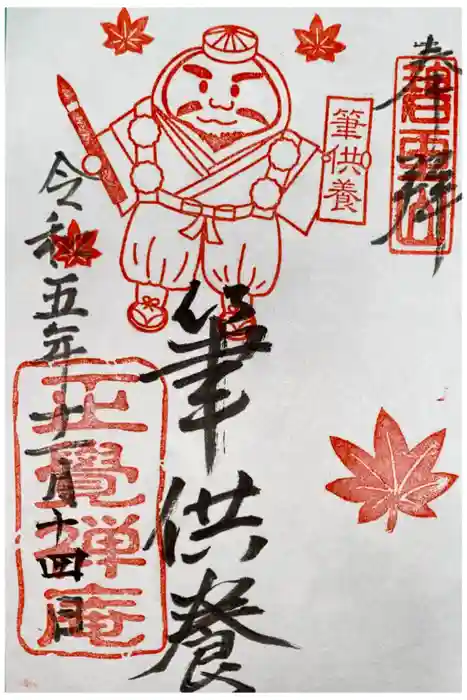 奉拝
筆供養
筆供養
令和五年十一月十四日
正覺禪庵